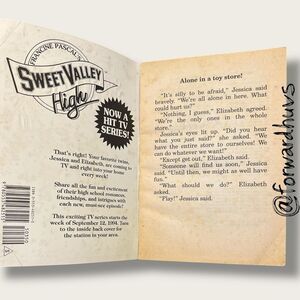 FRANCINE PASCAL'S
SWEET VALLEY
High
NOW A
HIT TV
SERIES!
That's right! Your favorite twins,
Jessica and Elizabeth, are coming
to TV and right into your home
every week!
Share all the fun and excitement
of their high school romances,
friendships, and intrigues with
each new, must-see episode!
This exciting TV series starts
the week of September 12, 1994. Turn
to the inside back cover for
the station in your area.
Alone in a toy store!
"It's silly to be afraid," Jessica said
bravely. "We're all alone in here. What
could hurt us?"
"Nothing, I guess," Elizabeth agreed.
"We're the only ones in the whole
store."
Jessica's eyes lit up. "Did you hear
what you just said?" she asked. "We
have the entire store to ourselves! We
can do whatever we want!"
"Except get out," Elizabeth said.
"Someone will find us soon," Jessica
said. "Until then, we might as well have
fun."
"What should we do?" Elizabeth
asked.
"Play!" Jessica said.
@Forwardhuvs